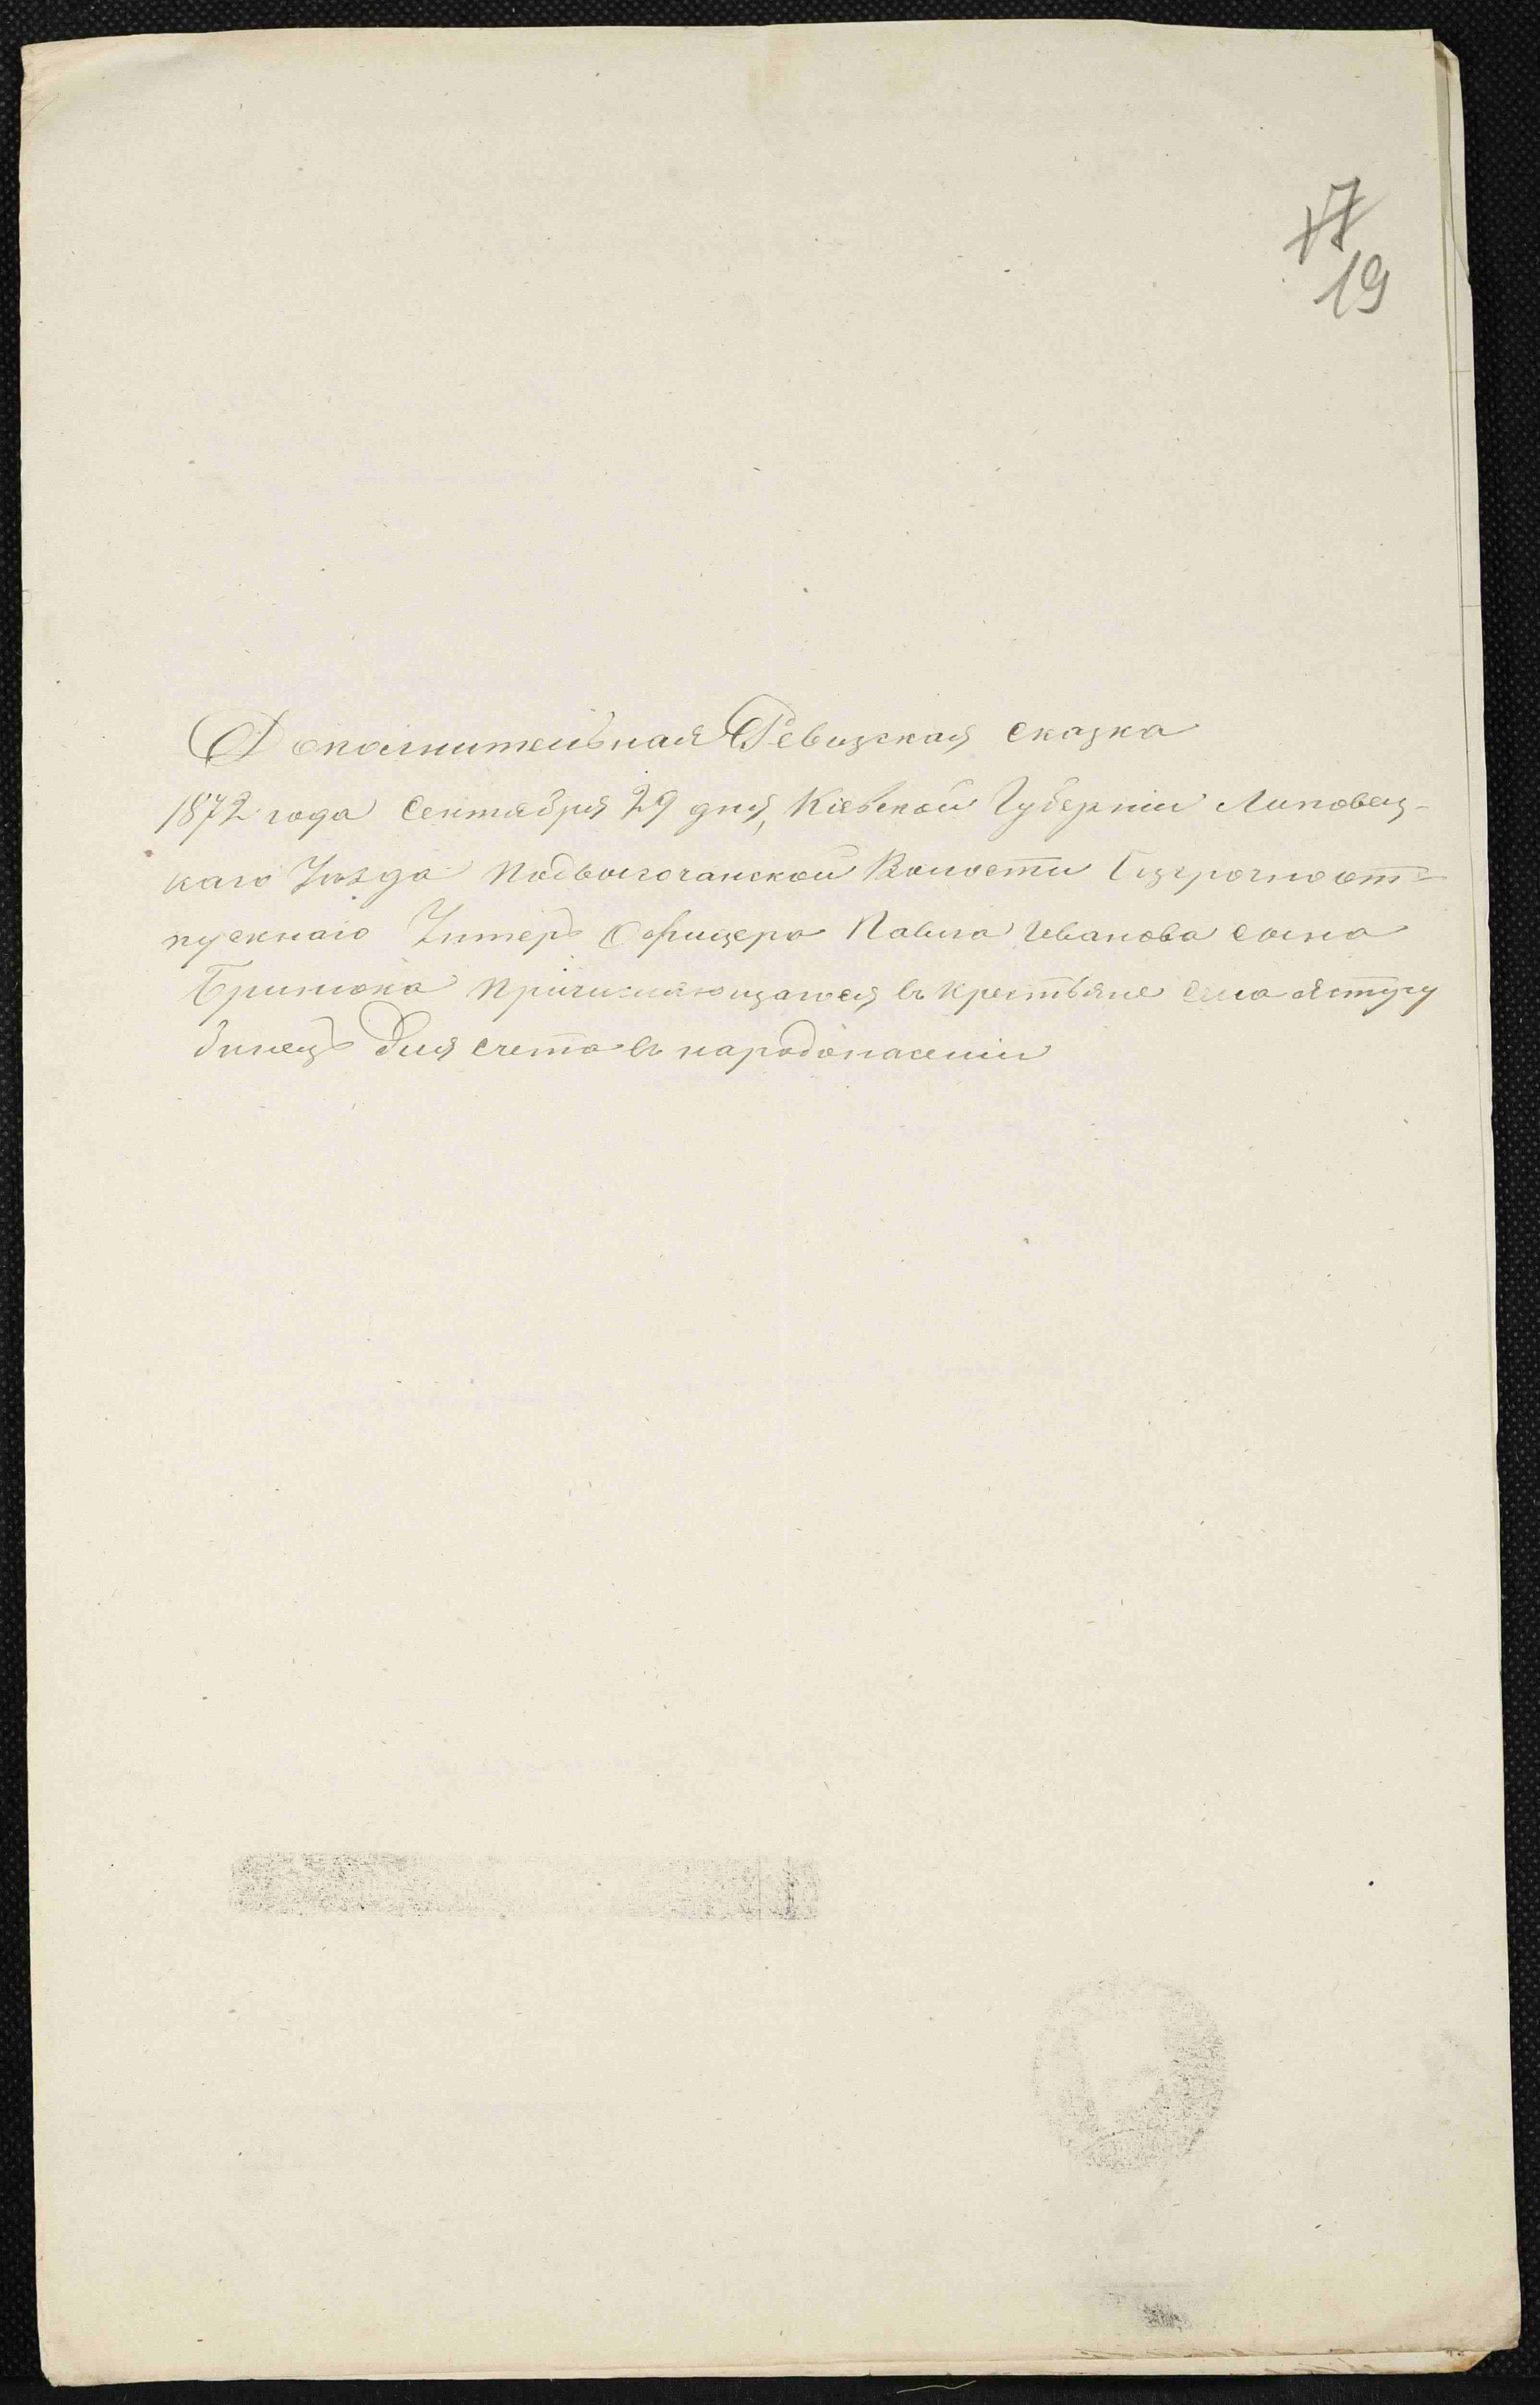 17
19
Дополнительная Ревизская сказка
1872 года Сентября 29 дня, Кіевской Губерніи Липовец-
каго Уѣзда Подвысочанской Волости Безсрочноот-
пускнаго Унтеръ Офицера Павла Иванова сына
причисляющагося въ крестьяне села Ястру
бинецъ Для счета въ народонаселеніи